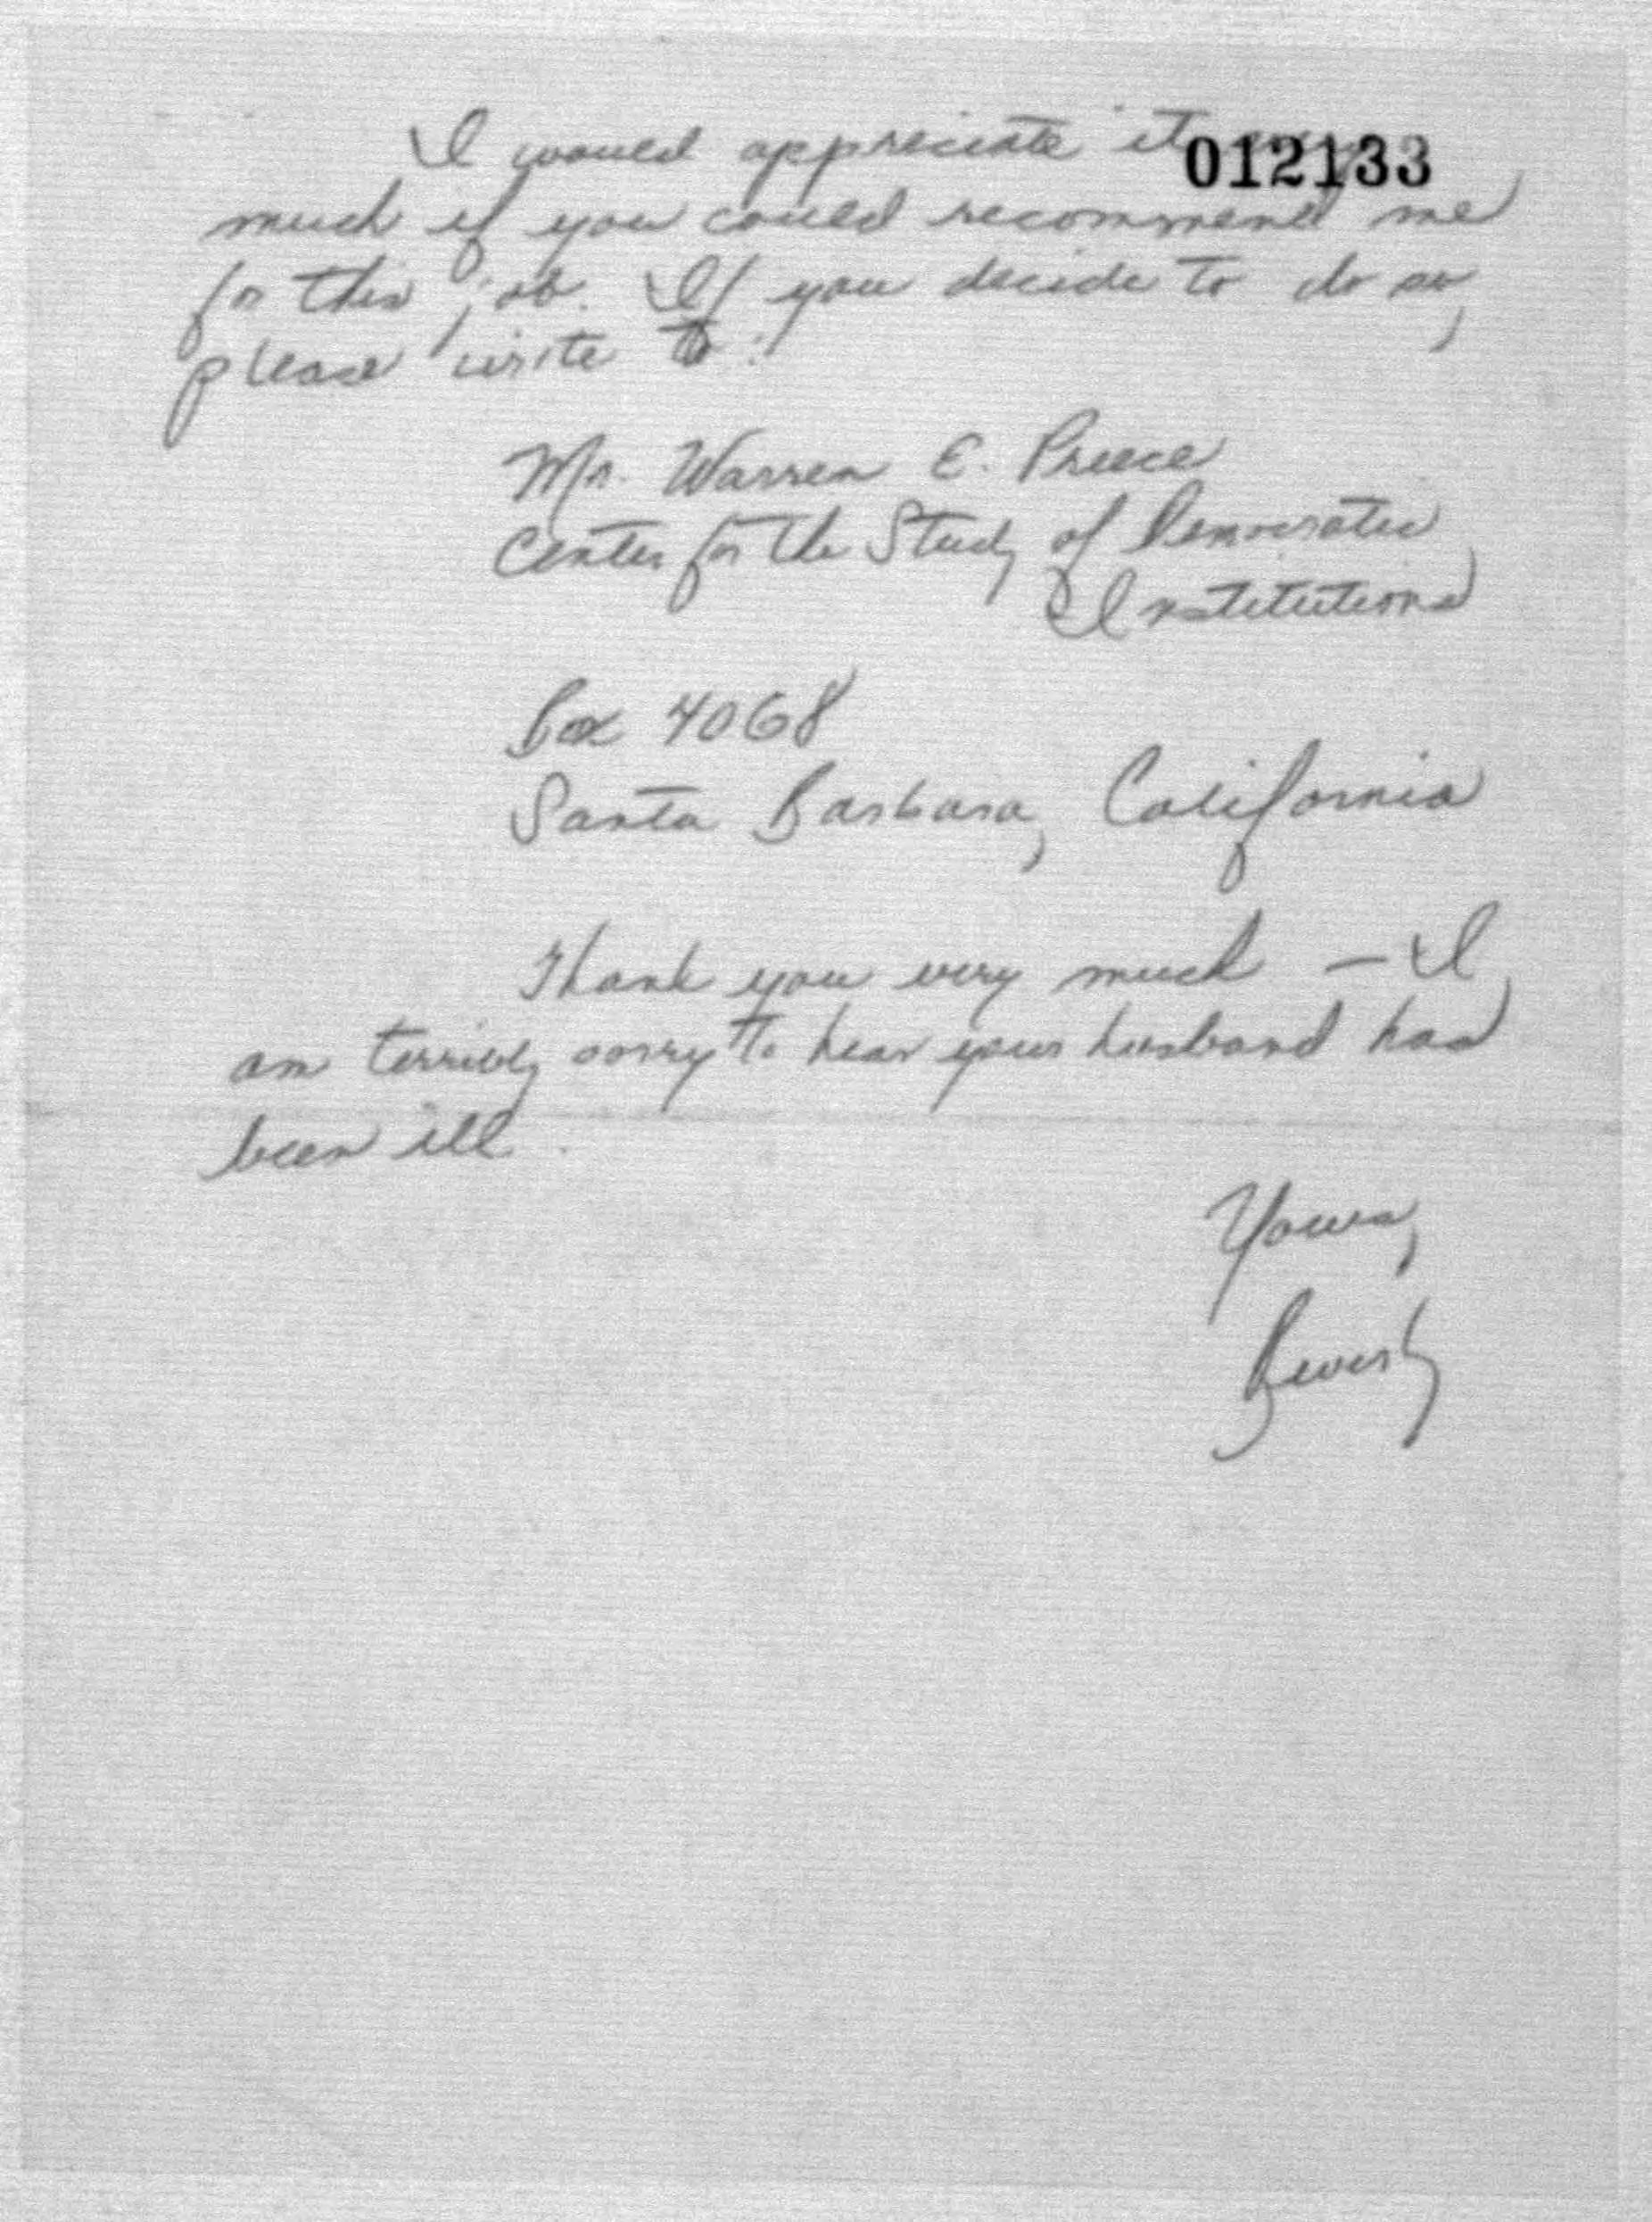 I would appreciate it
012133
much if you could recommend me
for this job. If you decide to do so,
please write to:
Mr. Warren E. Preece
Center for the Study of Democratic
Institutions
Box 4068
Santa Barbara, California
Thank you very much — I
am terribly sorry to hear your husband has
been ill.
Yours,
Beverly